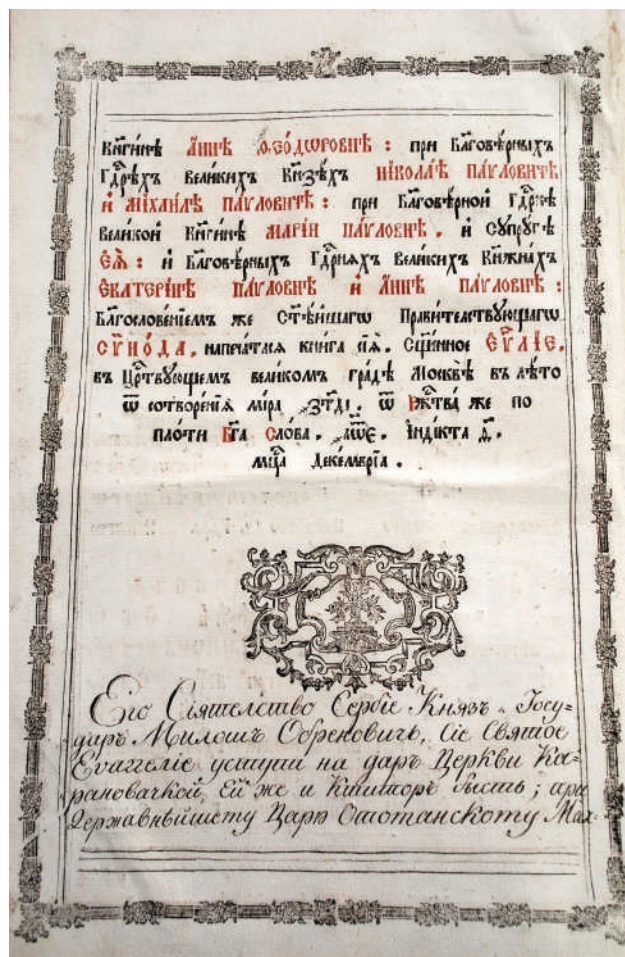 Кнѧги́нѣ А҆́ннѣ Ѳео́дѡровнѣ : при Бл҃говѣ́рныхъ
Гдⷭ҇рѣхъ великихъ Кнѧзѣхъ Нїкола́ѣ Па́ѵловичѣ
и҆ Мїхаи́лѣ Па́ѵловичѣ : при Бл҃говѣ́рной Гдⷭ҇рнѣ
великой Кнѧги́нѣ Марі́и Па́ѵловнѣ , и҆ сꙋпрꙋ́гѣ
Е҆ѧ̀ : и҆ Бл҃говѣ́рныхъ Гдⷭ҇рнѧхъ великихъ Кнѧжна́хъ
Є҆катері́нѣ Па́ѵловнѣ и҆ А҆́ннѣ Па́ѵловнѣ :
Бл҃гослове́нїемъ же Ст҃ѣ́йшагѡ Прави́телствꙋющагѡ
Сѵ́нода , напеча́тасѧ кни́га сїѧ̀ . Сщ҃е́нное Е҆ѵⷢ҇лїе ,
въ Црⷭ҇твꙋющемъ вели́комъ гра́дѣ Москвѣ̀ въ лѣ́то
ѿ сотворе́нїѧ мі́ра ҂зтд҃і . ѿ Ржⷭ҇тва́ же по
пло́ти Бг҃а Сло́ва , ҂аѿ҃є . І҆ндї́кта д҃ .
мцⷭ҇а Деке́мврїа .
Его Сіятелство Сербіе Князъ и Госу-
даръ Милошъ Обреновичъ, Сіе Святое
Евангеліе уступи на даръ Церкви Ка-
рановачкой, Ей же и Ктиторъ бысть; при
Державнѣйшему Цару Отоманскому Мах-